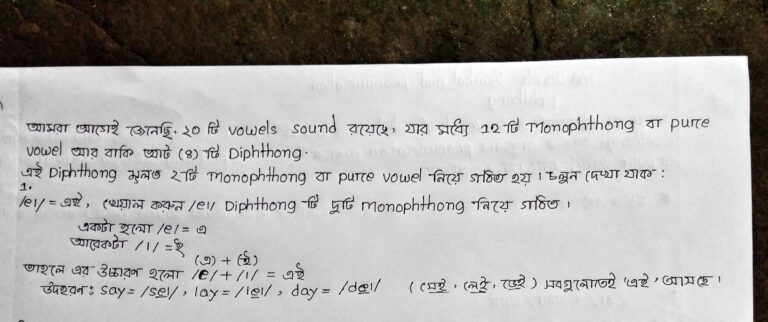 আমরা আগেই জেনেছি, ২০ টি vowels sound রয়েছে, যার মধ্যে 12 টি Monophthong বা pure
vowel আর বাকি আট (8) টি Diphthong.
এই Diphthong মূলত ২টি monophthong বা pure vowel নিয়ে গঠিত হয়। চলুন দেখা যাক :
1.
/eɪ/ = এই, খেয়াল করুন /eɪ/ Diphthong টি দুটি monophthong নিয়ে গঠিত।
একটা হলো /e/ = এ
আরেকটা /ɪ/ = ই
(এ) + (ই)
তাহলে এর উচ্চারণ হলো /e/ + /ɪ/ = এই
উদহরণ : say = /seɪ/, lay = /leɪ/, day = /deɪ/ (সেই, লেই, ডেই) সবগুলোতেই 'এই' আসছে।